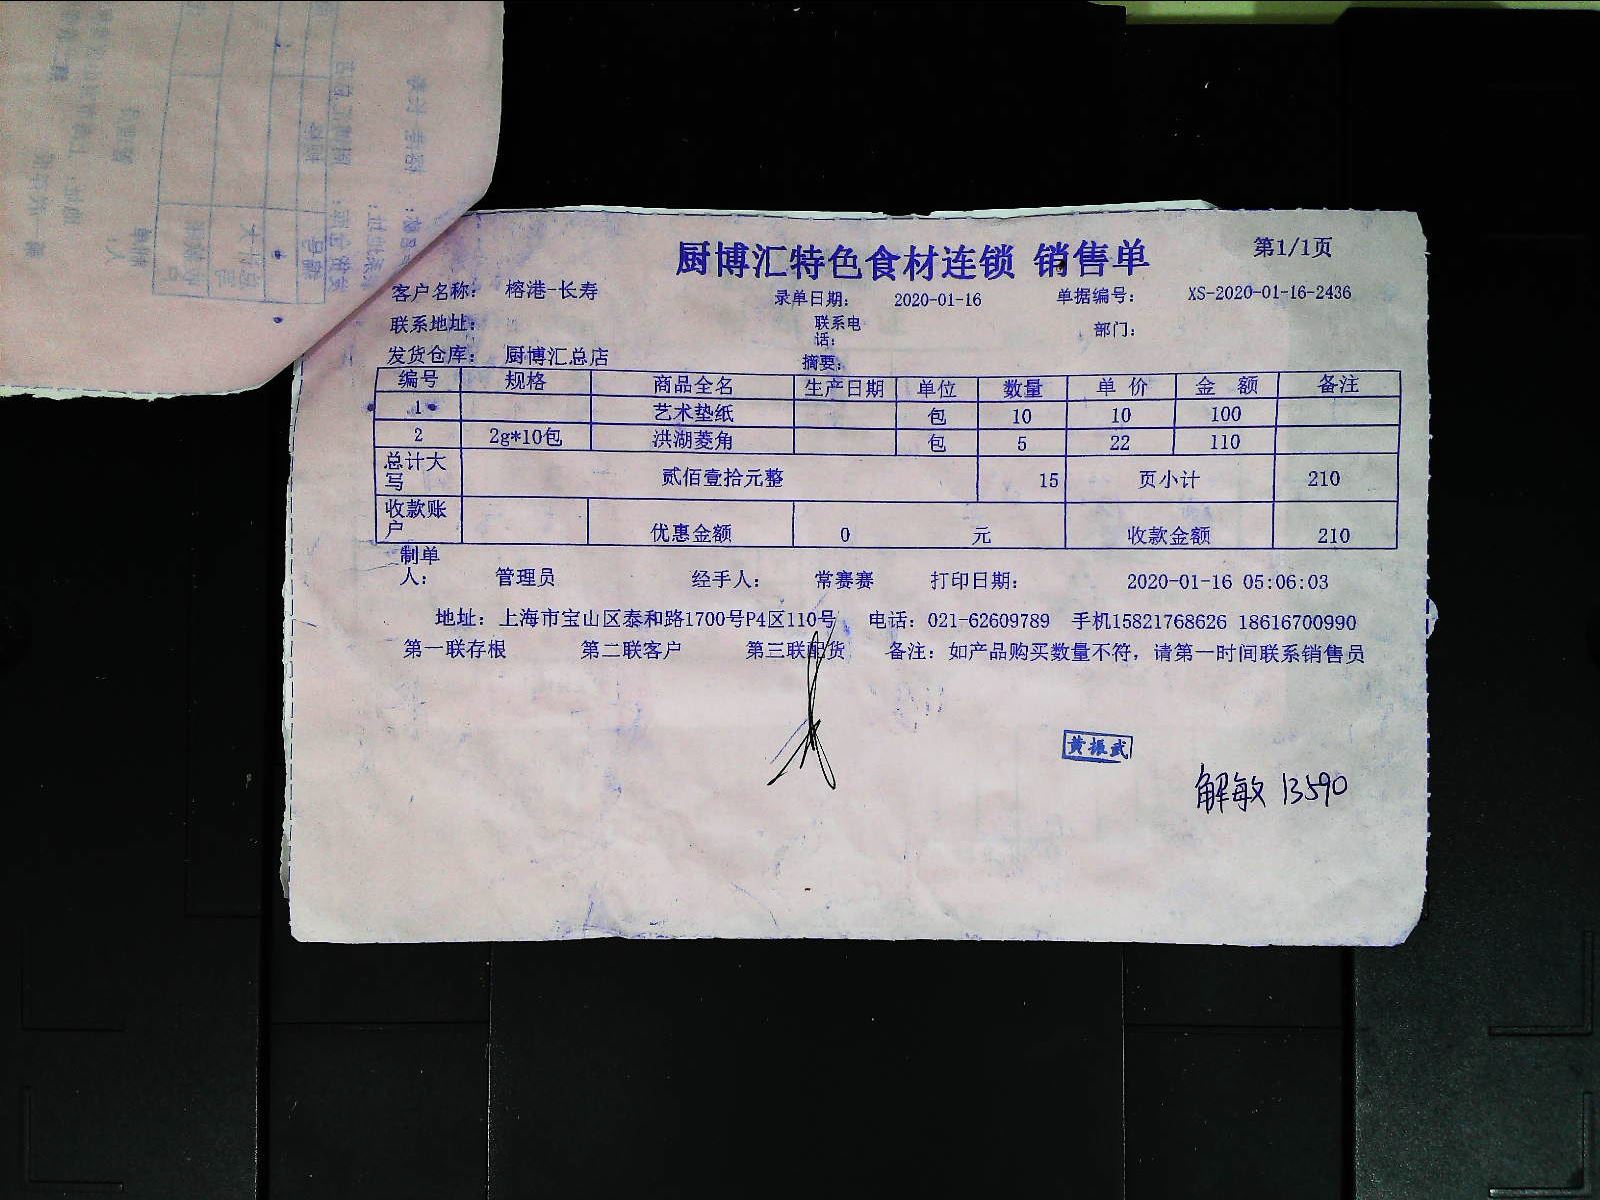 厨博汇特色食材连锁 销售单 第1/1页
客户名称： 榕港-长寿 录单日期： 2020-01-16 单据编号： XS-2020-01-16-2436
联系地址： 联系电话： 部门：
发货仓库： 厨博汇总店 摘要：
编号 规格 商品全名 生产日期 单位 数量 单 价 金 额 备注
1 艺术垫纸 包 10 10 100
2 2g*10包 洪湖菱角 包 5 22 110
总计大写 贰佰壹拾元整 15 页小计 210
收款账户 优惠金额 0 元 收款金额 210
制单人： 管理员 经手人： 常赛赛 打印日期： 2020-01-16 05:06:03
地址：上海市宝山区泰和路1700号P4区110号 电话：021-62609789 手机15821768626 18616700990
第一联存根 第二联客户 第三联配货 备注：如产品购买数量不符，请第一时间联系销售员
黄振武
解敏 13590